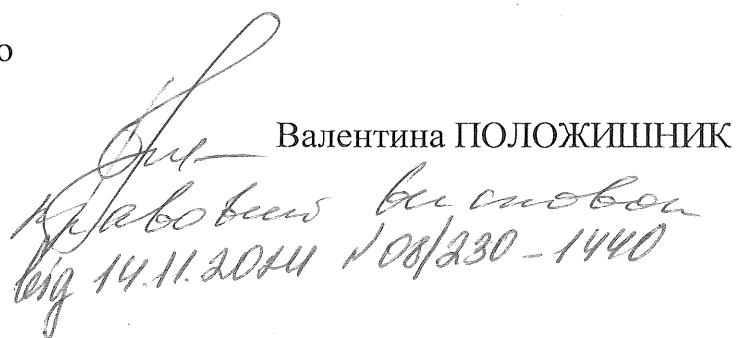 о
Валентина ПОЛОЖИШНИК
правовий висновок
від 14.11.2024 №08/230-1440